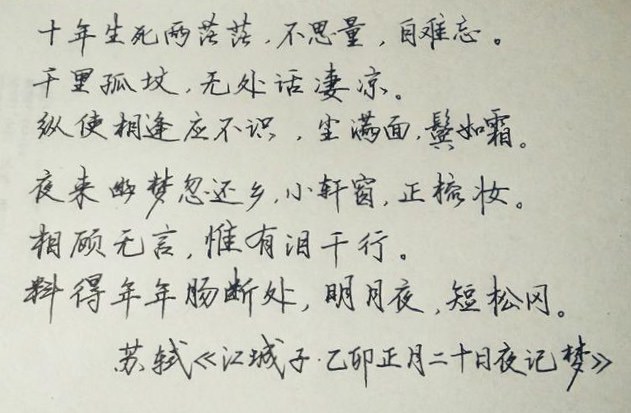 十年生死两茫茫，不思量，自难忘。
千里孤坟，无处话凄凉。
纵使相逢应不识，尘满面，鬓如霜。
夜来幽梦忽还乡，小轩窗，正梳妆。
相顾无言，惟有泪千行。
料得年年肠断处，明月夜，短松冈。
苏轼《江城子·乙卯正月二十日夜记梦》